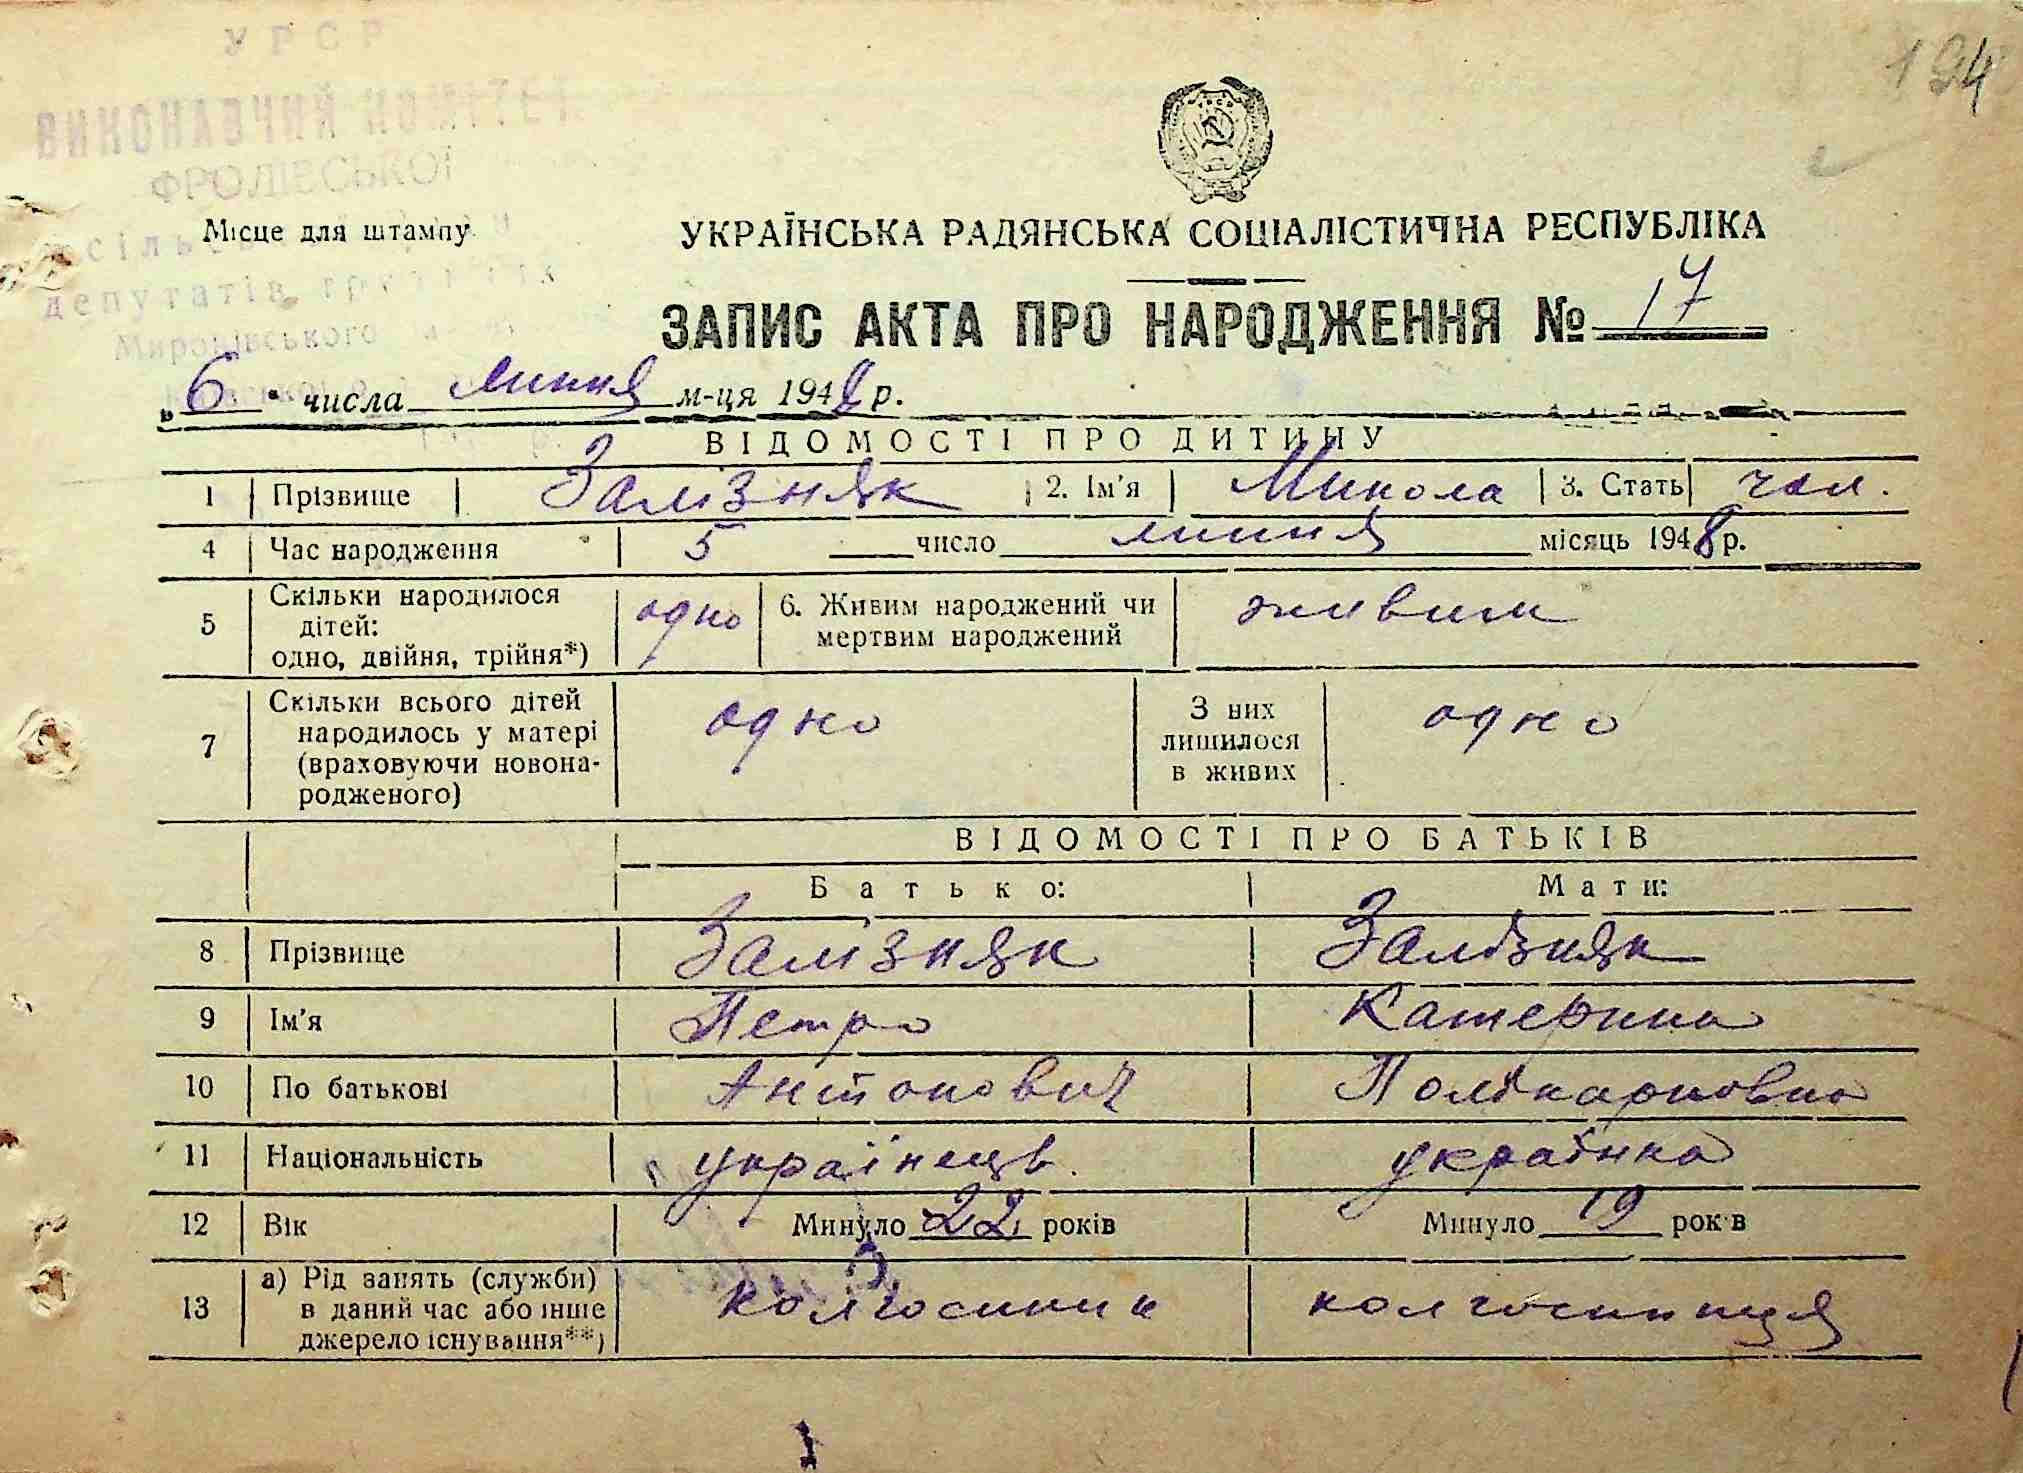 УРСР
194
ВИКОНАВЧИЙ КОМІТЕТ
ФРОЛІВСЬКОЇ
Місце для штампу
сільської
депутатів трудящих
Миронівського
УКРАЇНСЬКА РАДЯНСЬКА СОЦІАЛІСТИЧНА РЕСПУБЛІКА
ЗАПИС АКТА ПРО НАРОДЖЕННЯ № 17
„6“ числа липня м-ця 1948 р.
ВІДОМОСТІ ПРО ДИТИНУ
1 Прізвище Залізняк 2. Ім'я Микола 3. Стать чол.
4 Час народження 5 число липня місяць 1948 р.
5 Скільки народилося дітей: одно, двійня, трійня*) одно 6. Живим народжений чи мертвим народжений живим
7 Скільки всього дітей народилось у матері (враховуючи новонародженого) одно З них лишилося в живих одно
ВІДОМОСТІ ПРО БАТЬКІВ
Батько: Мати:
8 Прізвище Залізняк Залізняк
9 Ім'я Петро Катерина
10 По батькові Антонович Полікарповна
11 Національність українець українка
12 Вік Минуло 22 років Минуло 19 років
13 а) Рід занять (служби) в даний час або інше джерело існування**) колгоспник колгоспниця